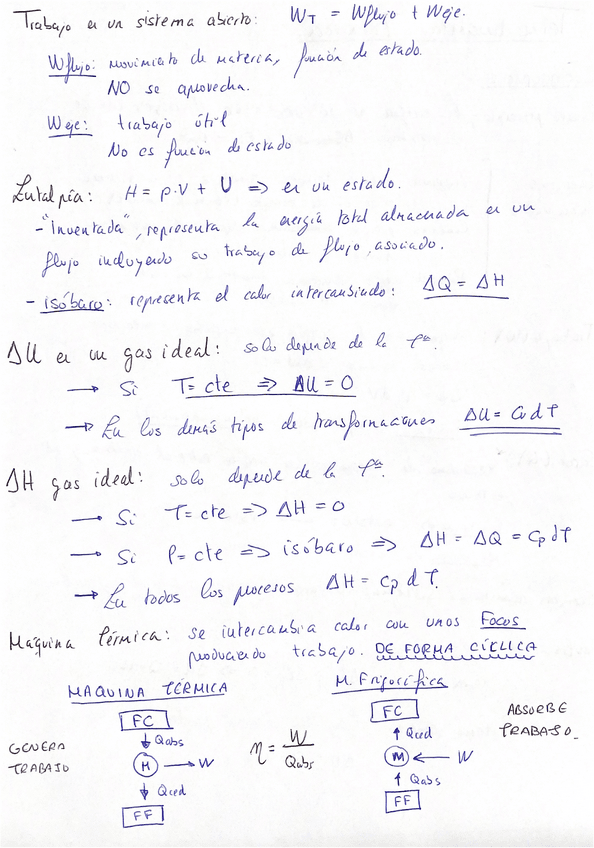 Trabajo en un sistema abierto: W_T = Wflujo + Weje.
Wflujo: movimiento de materia, función de estado.
NO se aprovecha.
Weje: trabajo útil
No es función de estado
Entalpía: H = p·V + U => en un estado.
- "Inventada", representa la energía total almacenada en un
flujo incluyendo su trabajo de flujo, asociado.
- isóbaro: representa el calor intercambiado: ΔQ = ΔH
ΔU en un gas ideal: solo depende de la Tª.
→ Si T = cte => ΔU = 0
→ En los demás tipos de transformaciones ΔU = Cv dT
ΔH gas ideal: solo depende de la Tª.
→ Si T = cte => ΔH = 0
→ Si P = cte => isóbaro => ΔH = ΔQ = Cp dT
→ En todos los procesos ΔH = Cp dT.
Máquina térmica: se intercambia calor con unos Focos
produciendo trabajo. DE FORMA CÍCLICA
MAQUINA TÉRMICA M. Frigorífica
FC FC ABSORBE
GENERA ↓ Qabs η = W / Qabs ↑ Qced TRABAJO.
TRABAJO M → W M ← W
↓ Qced ↑ Qabs
FF FF